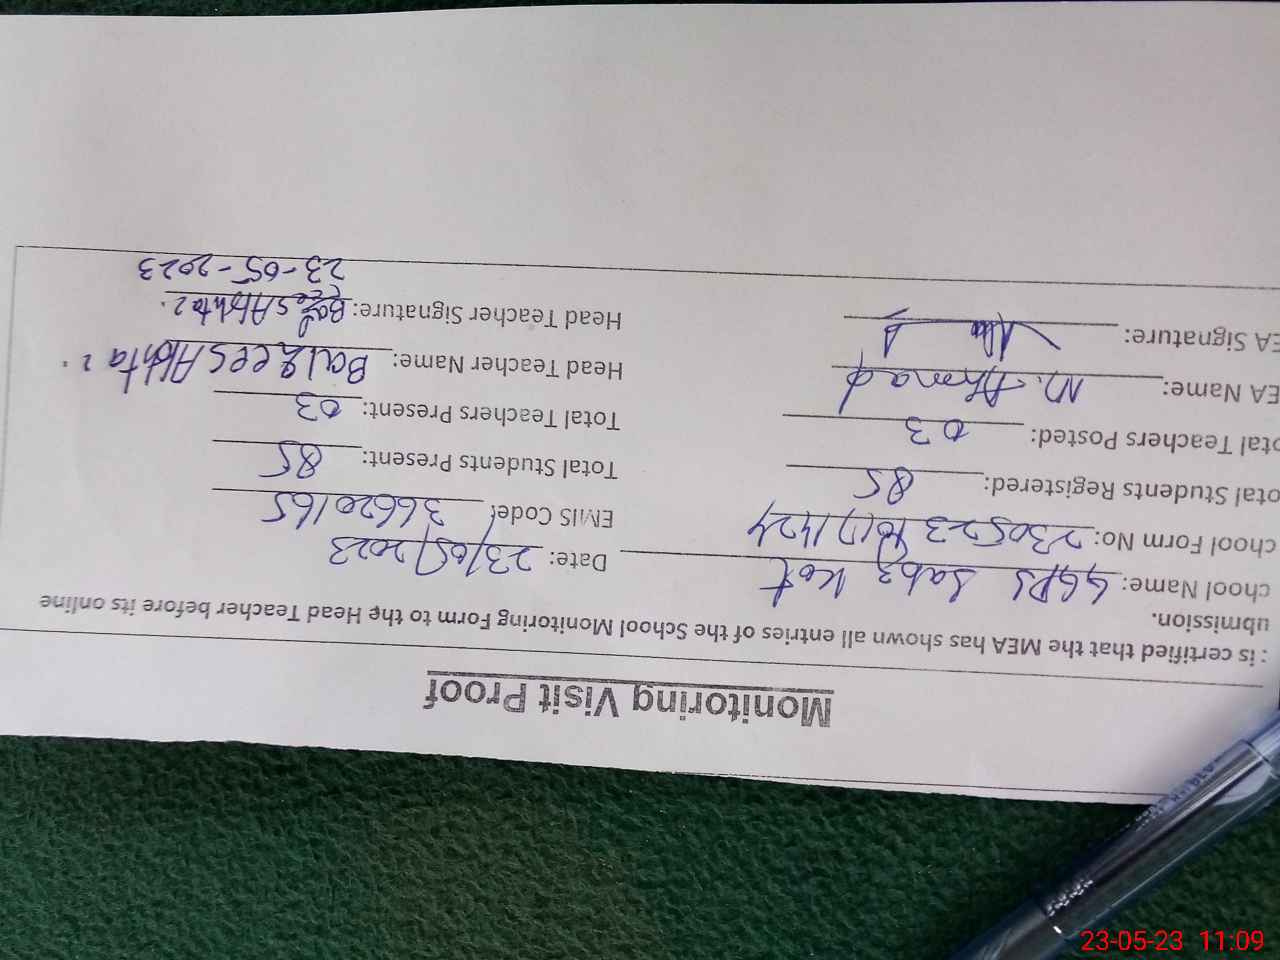 Monitoring Visit Proof
: is certified that the MEA has shown all entries of the School Monitoring Form to the Head Teacher before its online
ubmission.
chool Name: GGPS Sabz Kot Date: 23/05/2023
chool Form No: EMIS Code: 36620165
otal Students Registered: 85 Total Students Present: 85
otal Teachers Posted: 03 Total Teachers Present: 03
EA Name: M. Ahmad Head Teacher Name: Balqees Akhtar
EA Signature: Head Teacher Signature: Balqees Akhtar
23-05-2023
23-05-23 11:09